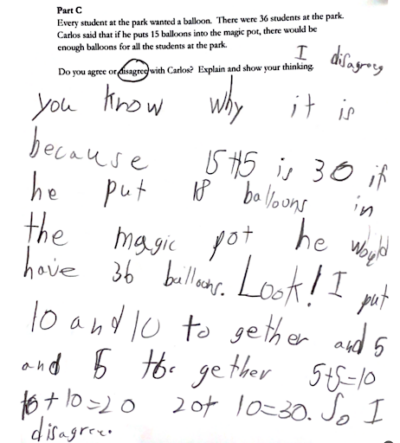 Part C
Every student at the park wanted a balloon. There were 36 students at the park.
Carlos said that if he puts 15 balloons into the magic pot, there would be
enough balloons for all the students at the park.
I disagreey
Do you agree or disagree with Carlos? Explain and show your thinking.
you know why it is
because 15+15 is 30 if
he put 18 balloons in
the magic pot he would
have 36 balloons. Look! I put
10 and 10 to gether and 5
and 5 to gether 5+5=10
10+10=20 20+10=30. So I
disagree.